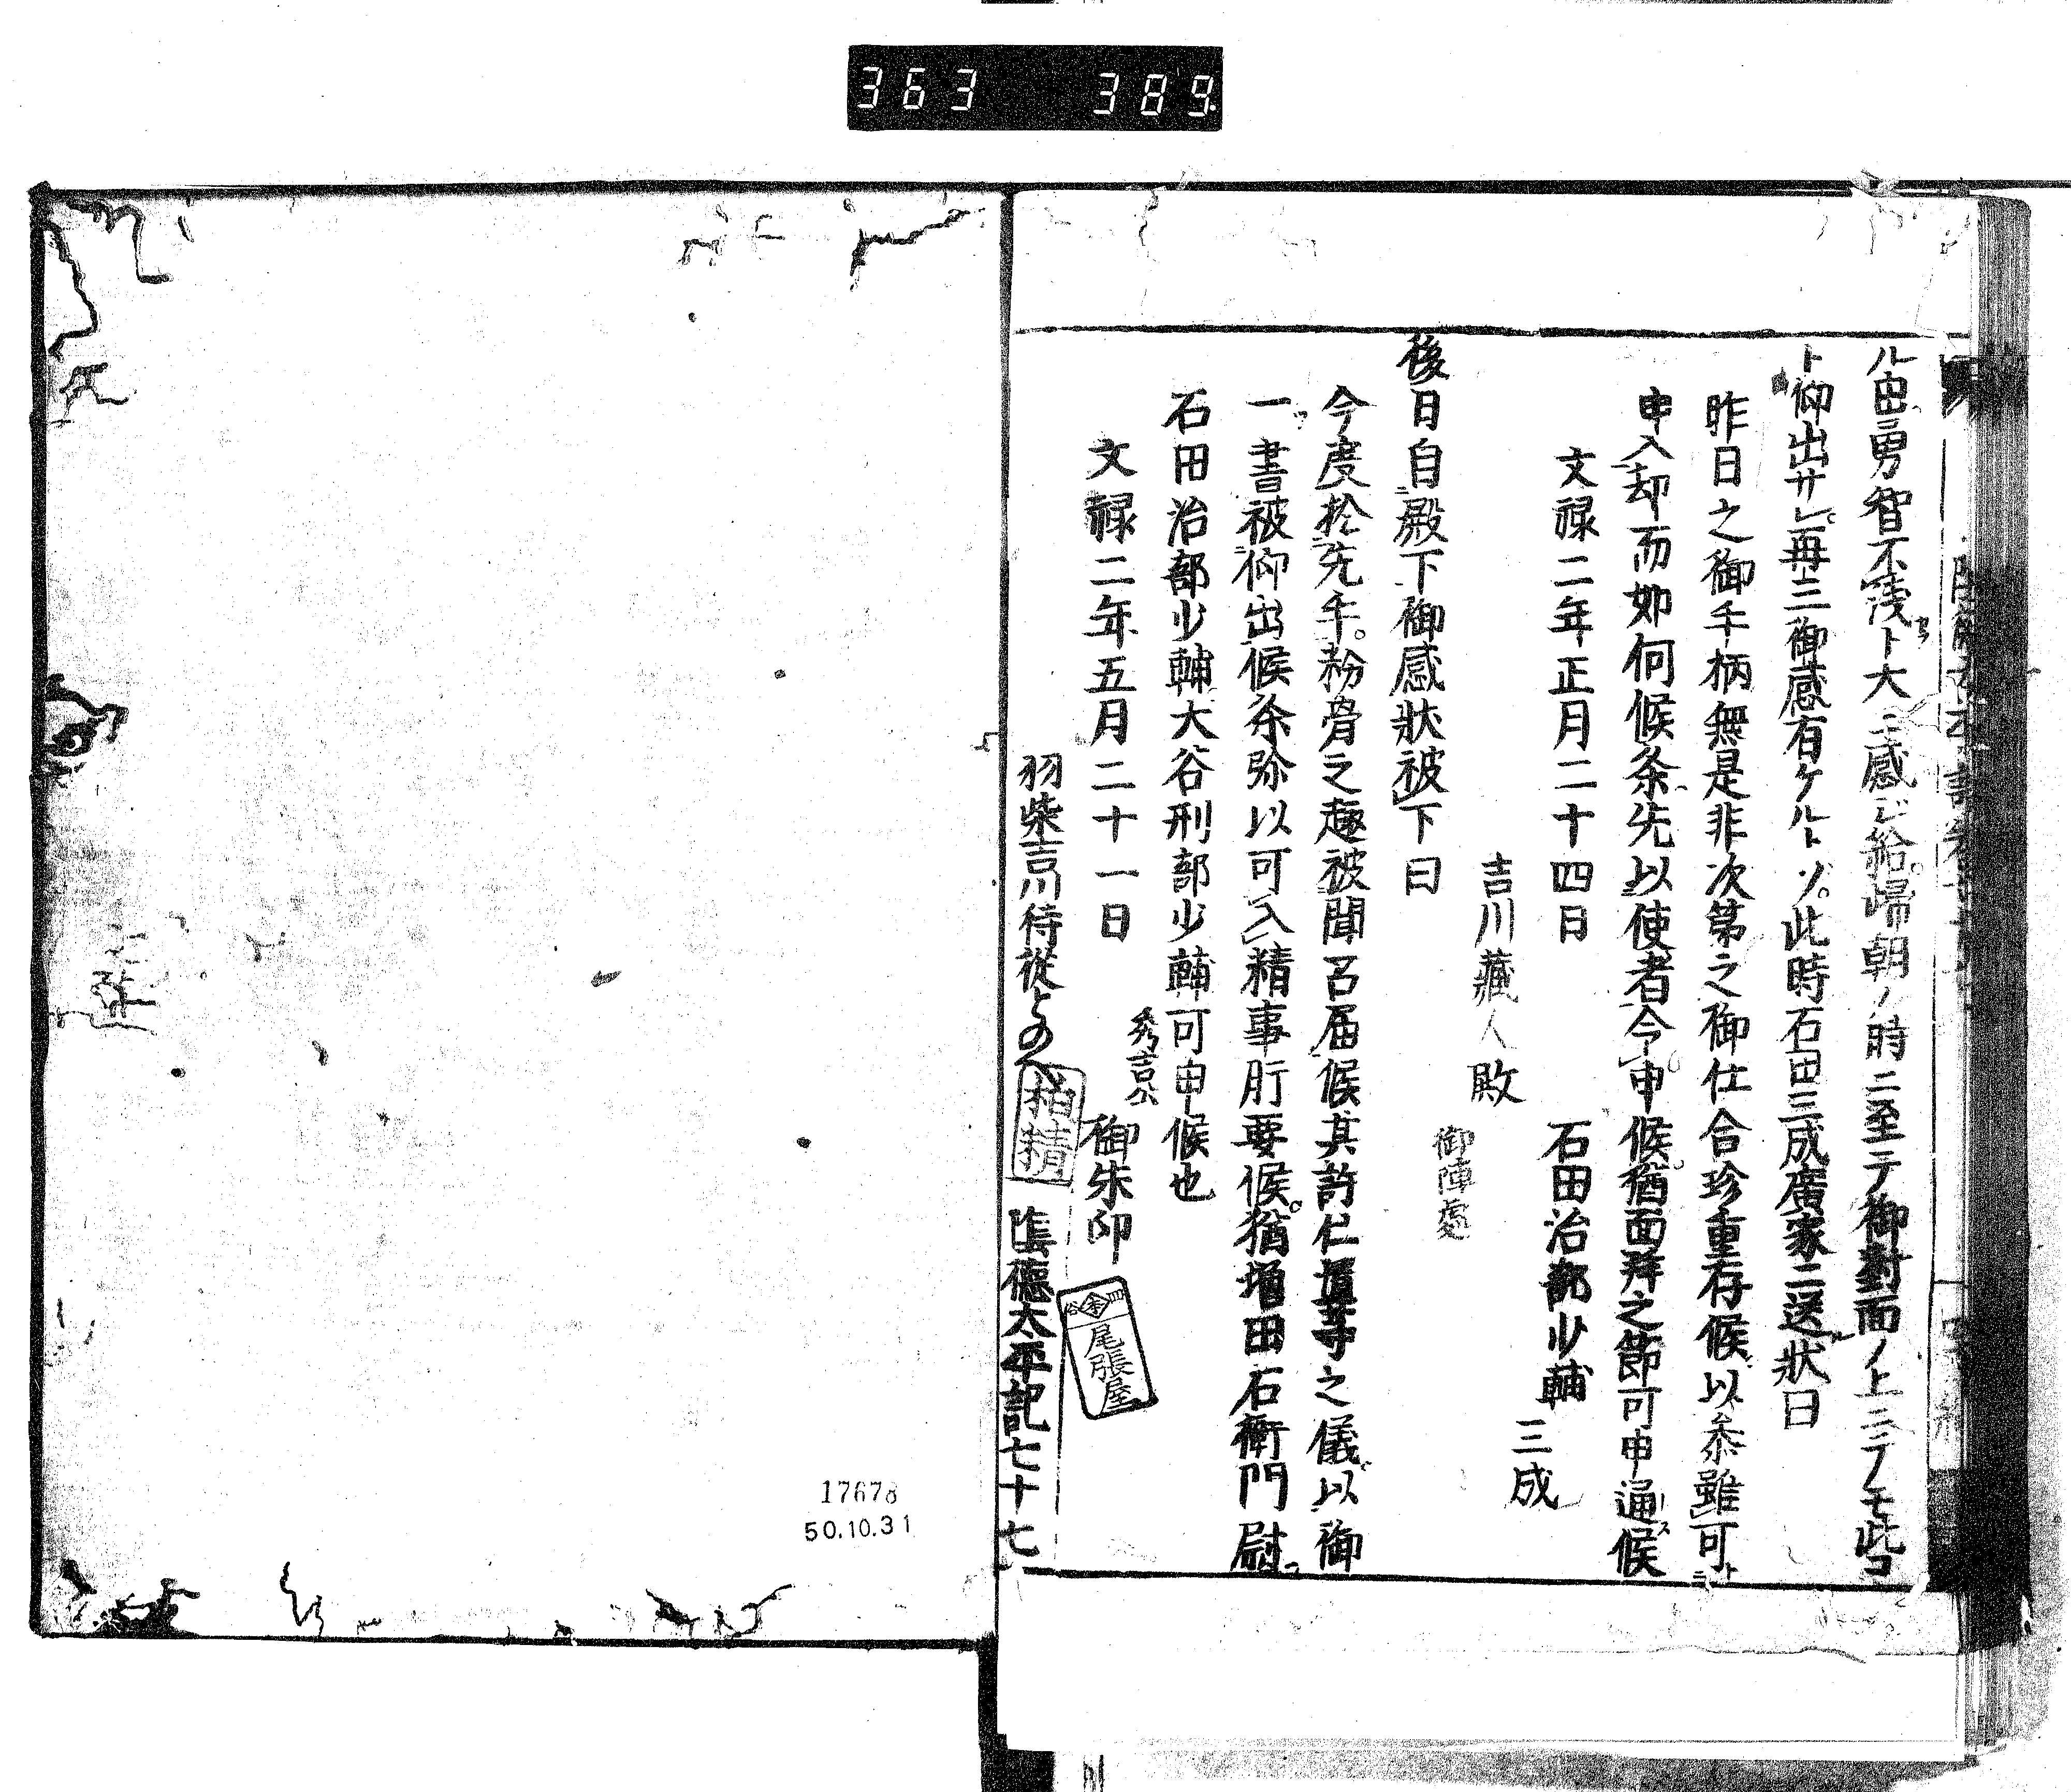 363 389
ル由勇智不浅ト大ニ感ジ給帰朝ノ時ニ至テ御對面ノ上ニテモ此コ
ト仰出サレ再三御感有ケルトソ此時石田三成廣家ニ送状曰
昨日之御手柄無是非次第之御仕合珍重存候以参雖可
申入却而如何候条先以使者令申候猶面拜之節可申通候
文禄二年正月二十四日
石田治部少輔
三成
吉川藏人殿
御陣處
後日自殿下御感状被下曰
今度於先手粉骨之趣被聞召届候其許仁置等之儀以御
一書被仰出候条弥以可入精事肝要候猶増田右衛門尉
石田治部少輔大谷刑部少輔可申候也
文禄二年五月二十一日
秀吉公
御朱印
羽柴吉川侍従とのへ
陰徳太平記七十七
尾張屋
17678
50.10.31